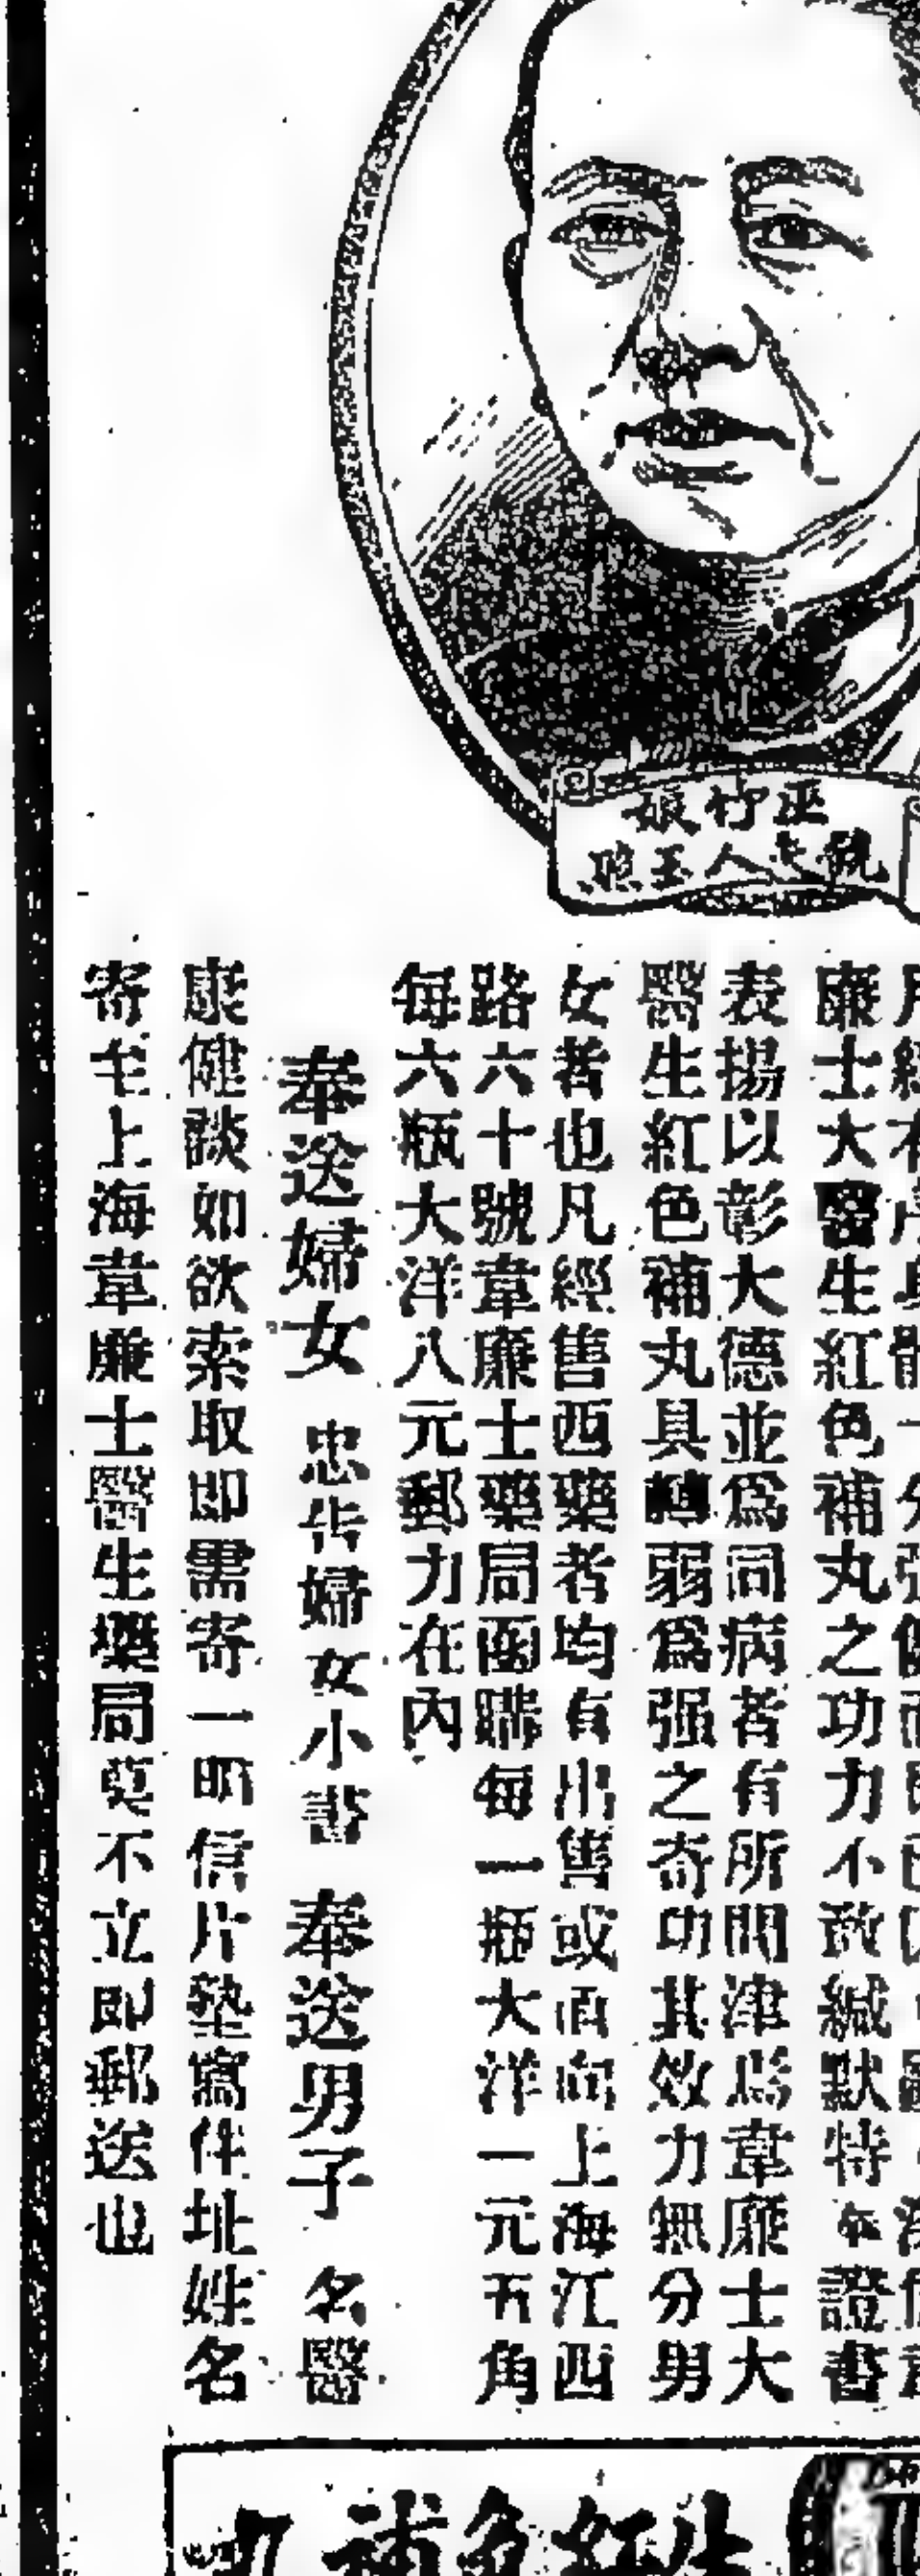 巫竹娘
人玉照
廉士大醫生紅色補丸之功力不敢緘默特 證書
表揚以彰大德並爲同病者有所問津焉韋廉士大
醫生紅色補丸具轉弱爲强之奇功其效力無分男
女者也凡經售西藥者均有出售或直向上海江西
路六十號韋廉士藥局函購每一瓶大洋一元五角
每六瓶大洋八元郵力在內
奉送婦女 忠告婦女小書 奉送男子 名醫
康健談如欲索取即需寄一明信片墊寫住址姓名
寄至上海韋廉士醫生藥局莫不立即郵送也
生紅色補丸